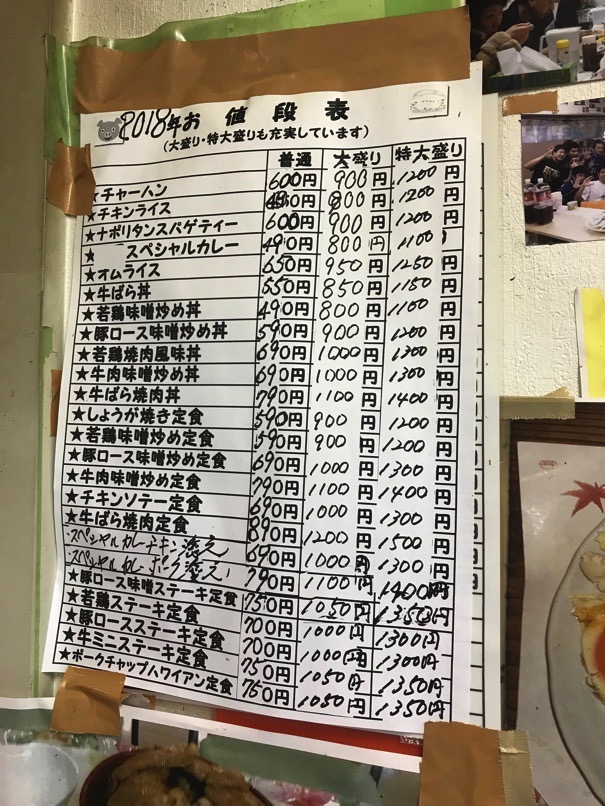 2018年お値段表
(大盛り・特大盛りも充実しています)
普通 大盛り 特大盛り
★チャーハン 600円 900円 1200円
★チキンライス 円 800円 1200円
★ナポリタンスパゲティー 600円 900円 1200円
★ スペシャルカレー 490円 800円 1100円
★オムライス 650円 950円 1250円
★牛ばら丼 550円 850円 1150円
★若鶏味噌炒め丼 490円 800円 1100円
★豚ロース味噌炒め丼 590円 900円 1200円
★若鶏焼肉風味丼 690円 1000円 1300円
★牛肉味噌炒め丼 690円 1000円 1300円
★牛ばら焼肉丼 790円 1100円 1400円
★しょうが焼き定食 590円 900円 1200円
★若鶏味噌炒め定食 590円 900円 1200円
★豚ロース味噌炒め定食 690円 1000円 1300円
★牛肉味噌炒め定食 790円 1100円 1400円
★チキンソテー定食 690円 1000円 1300円
★牛ばら焼肉定食 890円 1200円 1500円
・スペシャルカレーチキン添え 690円 1000円 1300円
・スペシャルカレーポーク添え 790円 1100円 1400円
★豚ロース味噌ステーキ定食 750円 1050円 1350円
★若鶏ステーキ定食 700円 1000円 1300円
★豚ロースステーキ定食 700円 1000円 1300円
★牛ミニステーキ定食 750円 1050円 1350円
★ポークチャップハワイアン定食 750円 1050円 1350円